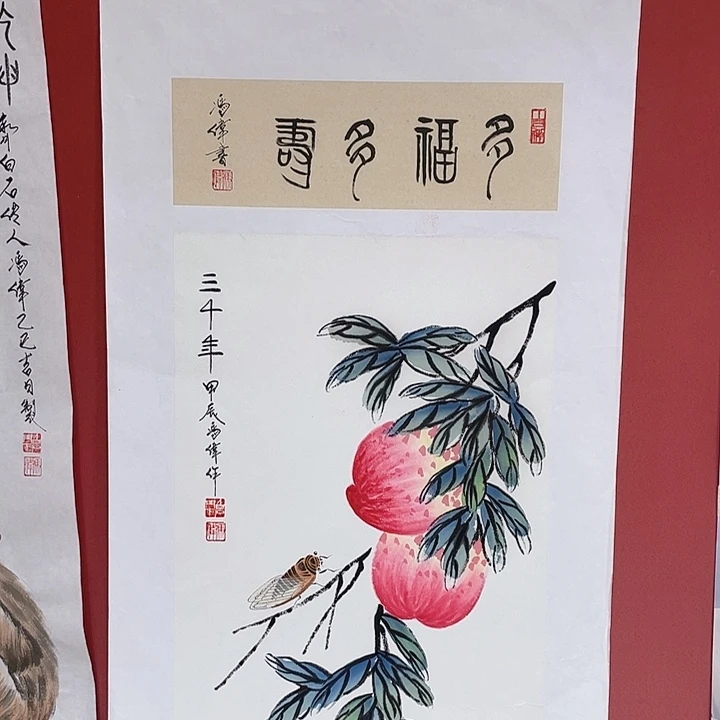 多福多壽
馮偉書
三千年
甲辰馮偉作
擬白石老人馮偉乙巳吉日製